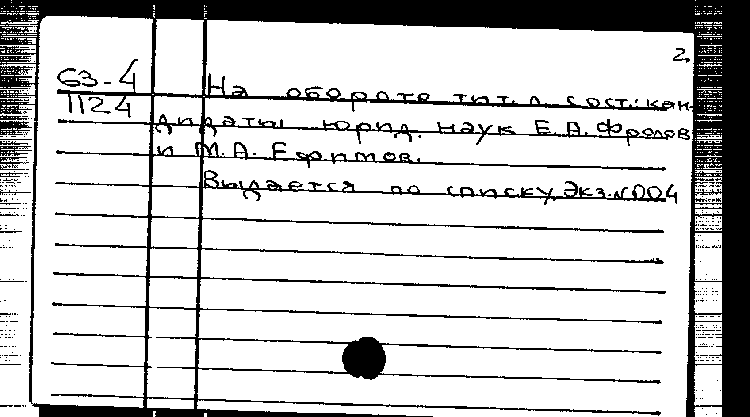 2.
63-4
1124
На обороте тит. л. сост.: кан-
дидаты юрид. наук Е.А. Фролов
и М.А. Ефимов.
Выдается по списку. Экз. №004